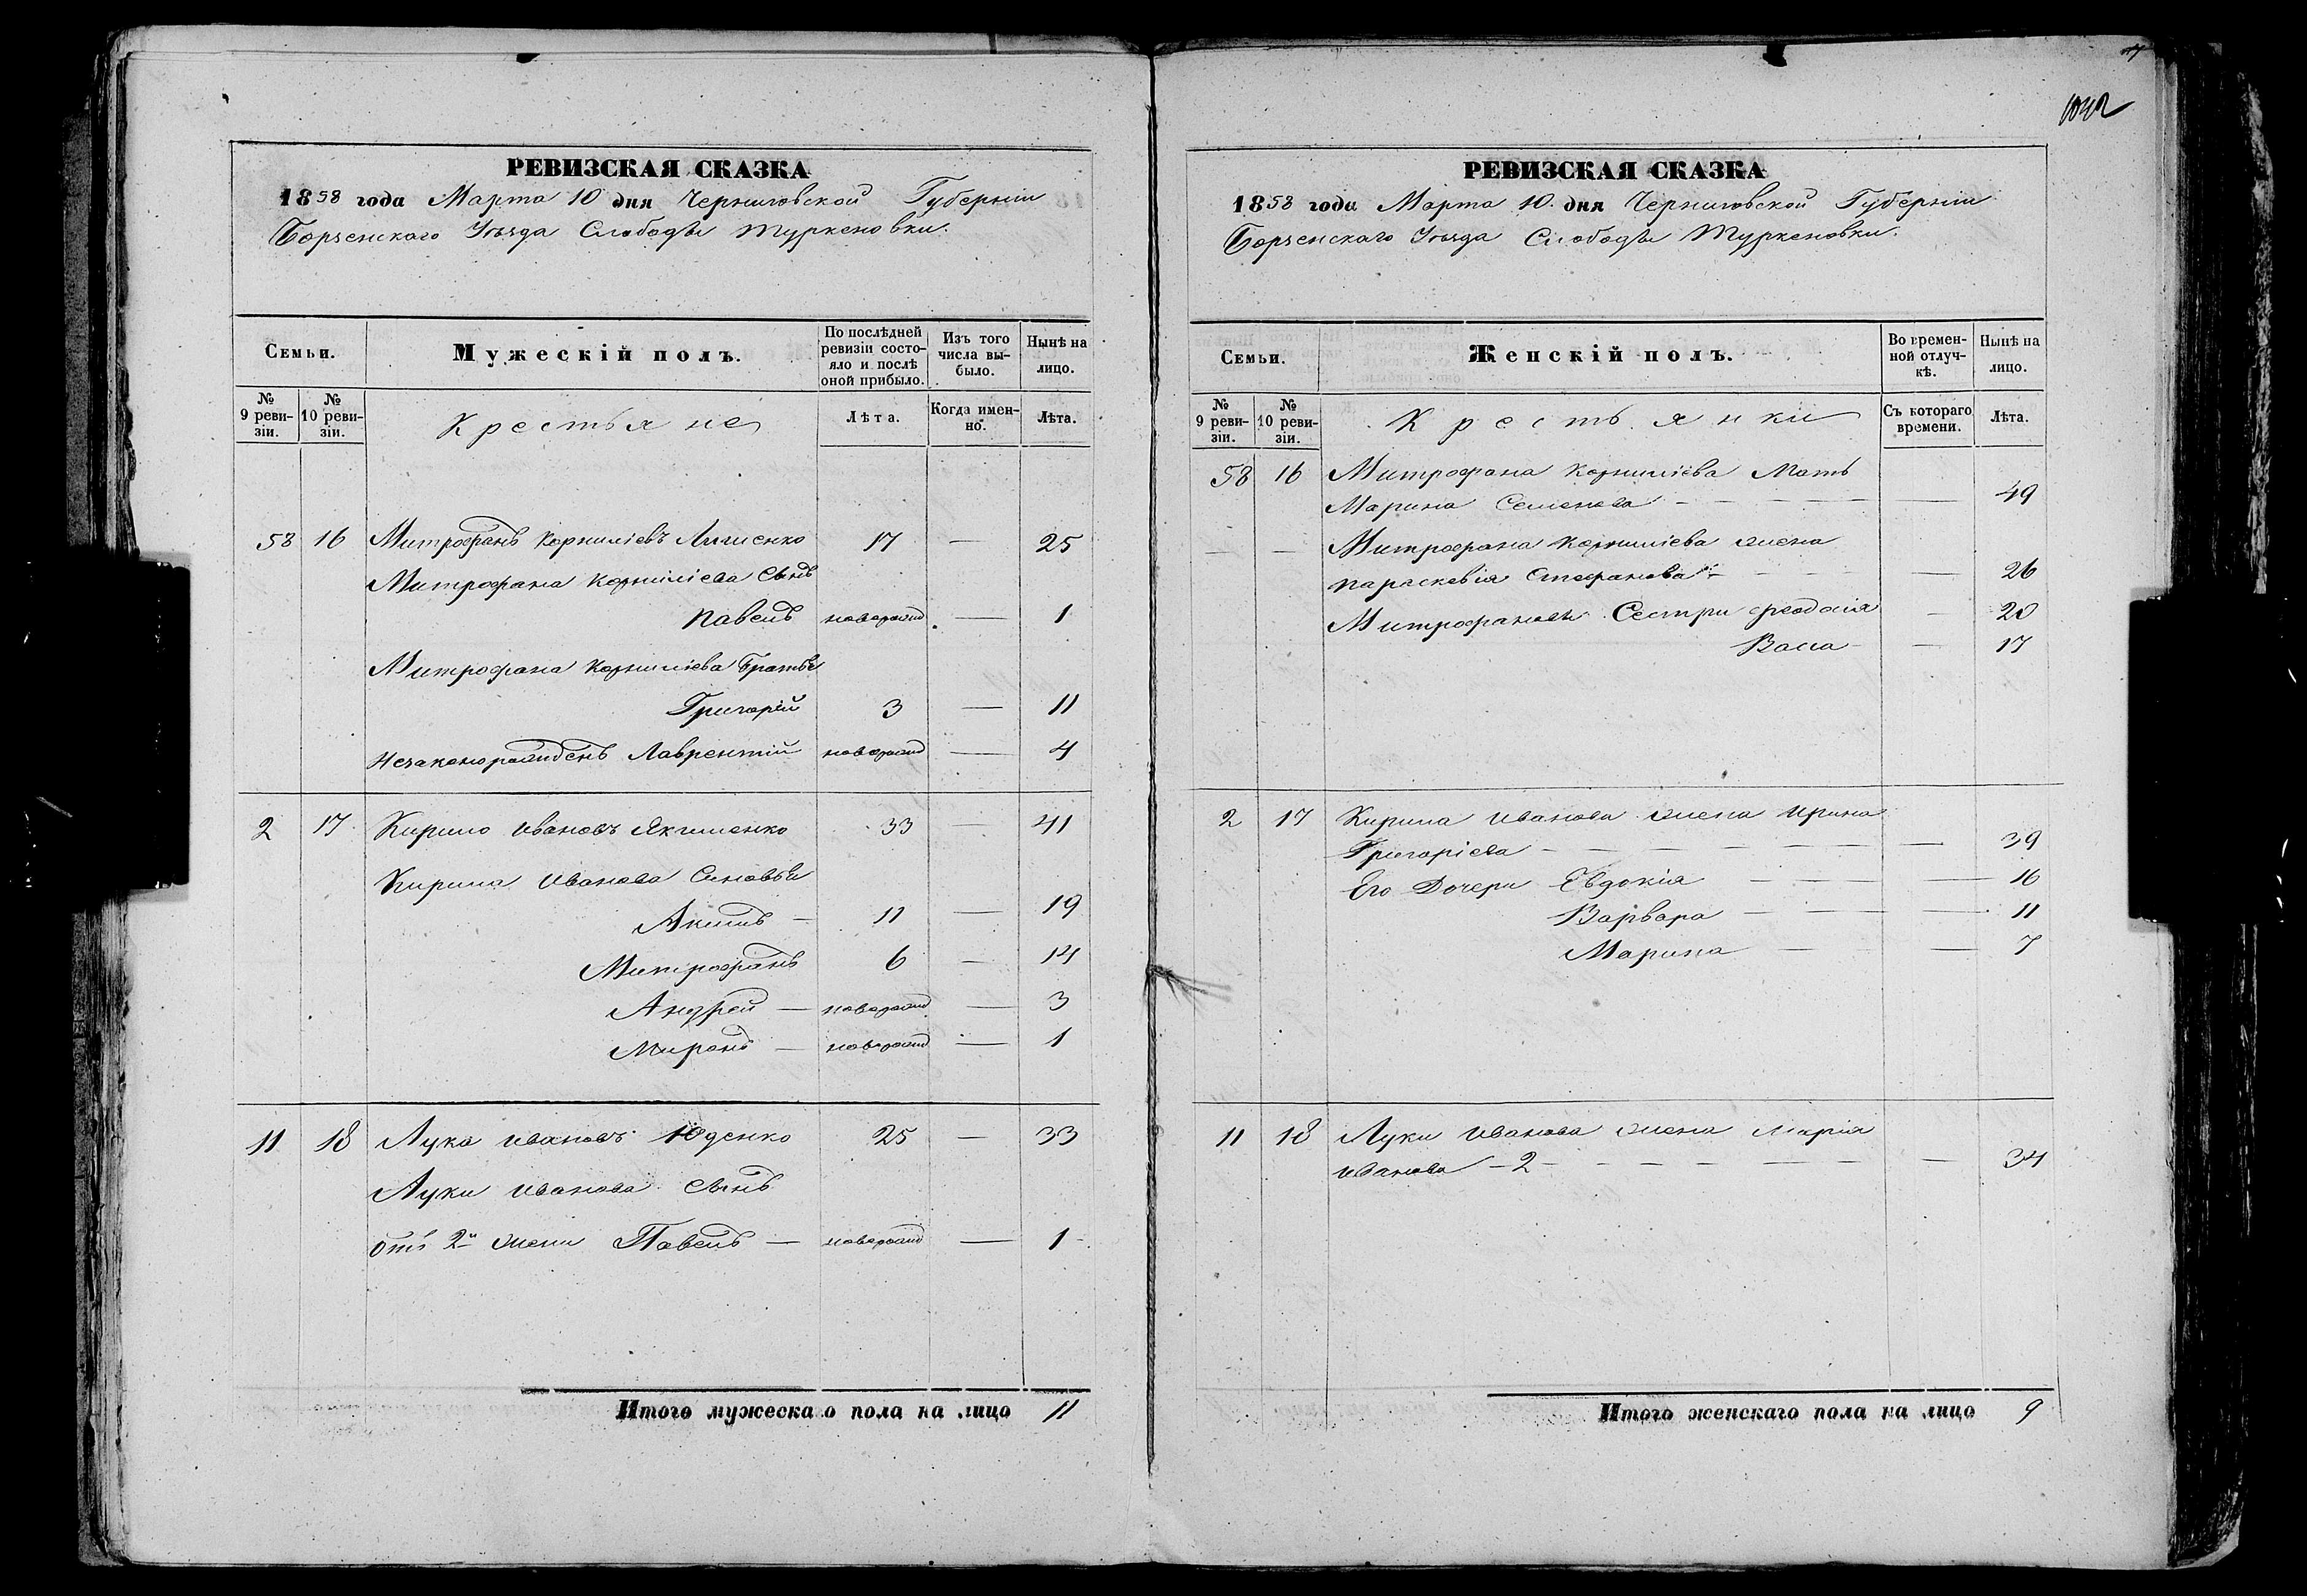 РЕВИЗСКАЯ СКАЗКА
1858 года Марта 10 дня Черниговской Губерніи
Борзенскаго Уѣзда Слободы Туркеновки.
Семьи.
Мужескій полъ.
По послѣдней ревизіи состояло и послѣ оной прибыло.
Изъ того числа выбыло.
Нынѣ на лицо.
№ 9 ревизіи.
№ 10 ревизіи.
Крестьяне
Лѣта.
Когда именно.
Лѣта.
58 16 Митрофанъ Корниліевъ 17 — 25
Митрофана Корниліева Сынъ
Павелъ новорожд — 1
Митрофана Корниліева Братья
Григорій 3 — 11
Незаконорожденъ Лаврентій новорожд — 4
2 17 Кирило Ивановъ Якименко 33 — 41
Кирила Иванова Синовья
Акимъ — 11 — 19
Митрофанъ 6 — 14
Андрей — новорожд — 3
Миронъ — новорожд — 1
11 18 Лука Ивановъ Юденко 25 — 33
Луки Иванова Сынъ
отъ 2й жени Павелъ — новорожд — 1
Итого мужескаго пола на лицо 11
1042
РЕВИЗСКАЯ СКАЗКА
1858 года Марта 10 дня Черниговской Губерніи
Борзенскаго Уѣзда Слободы Туркеновки.
Семьи.
Женскій полъ.
Во временной отлучкѣ.
Нынѣ на лицо.
№ 9 ревизіи.
№ 10 ревизіи.
Крестьянки
Съ котораго времени.
Лѣта.
58 16 Митрофана Корниліева Мать
Марина Семенова — 49
— — Митрофана Корниліева жена
Параскевія Стефанова — 26
Митрофановы Сестри Феодосія — 20
Васса — 17
2 17 Кирила Иванова жена Ирина
Григоріева — 39
Его Дочери Евдокія — 16
Варвара — 11
Марина — 7
11 18 Луки Иванова жена Марія
Иванова — 2 — 34
Итого женскаго пола на лицо 9